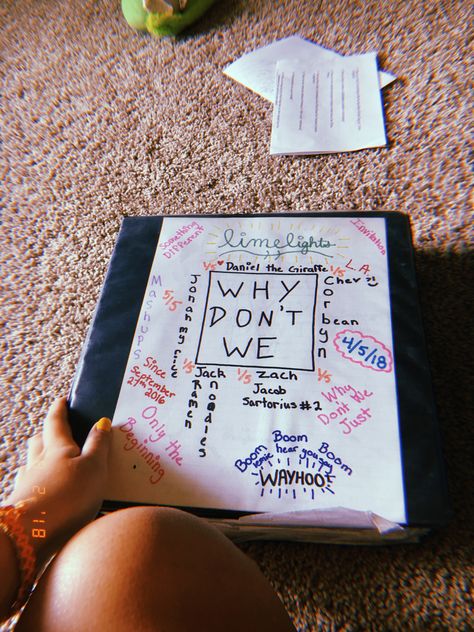 Something
Different
limelights
Invitation
1/5 ♥ Daniel the Giraffe 1/5
L.A
Mashups
5/5
Jonahmyrice
WHY
DON'T
WE
Chev
Corbyn
bean
4/5/18
Since
September
27th 2016
1/5
Jack
Ramen
noodles
1/5
Zach
Jacob
Sartorius #2
1/5
Why
Don't We
Just
Only the
Beginning
Boom Boom Boom
lemie hear you say
WAYHOO
2 '18